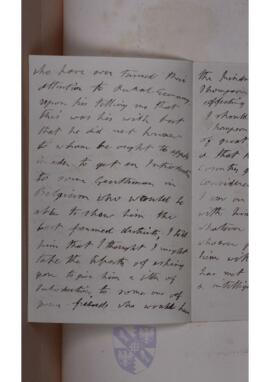 who have ever turned their
attention to
upon his telling me that
this was his wish but
that he did not know
to whom he ought to apply
in order to get an Introduction
to some Gentleman in
Belgium who would be
able to shew him the
best farmed districts, I told
him that I thought I might
take the liberty of asking
you to give him a
Introduction to some one of
your friends who would
the
Thompson
affecting
I should
Thompson
of great
a that
Country
considered
I am on
with him
whatever
whoever
him with
has not
a intellige